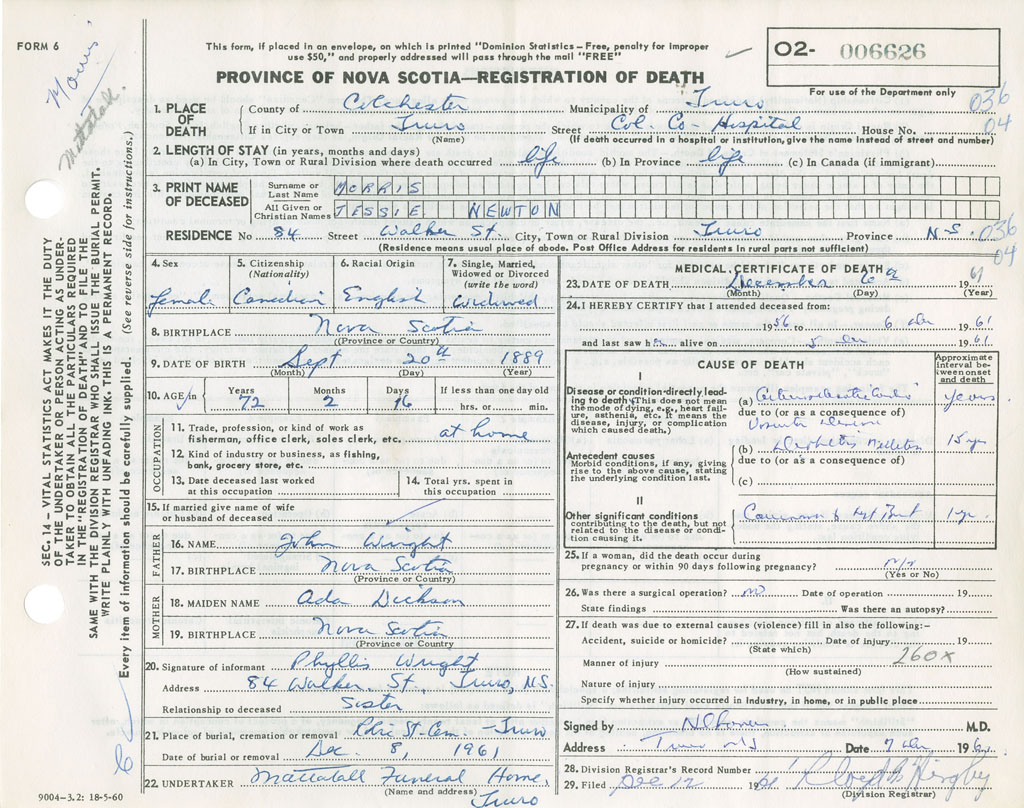 FORM 6
Morris
Mattatall.
This form, if placed in an envelope, on which is printed "Dominion Statistics – Free, penalty for improper
use $50," and properly addressed will pass through the mail "FREE"
O2- 006626
For use of the Department only
PROVINCE OF NOVA SCOTIA—REGISTRATION OF DEATH
036
04
1. PLACE OF DEATH
County of Colchester Municipality of Truro
If in City or Town Truro Street Col. Co- Hospital House No.
(Name) (If death occurred in a hospital or institution, give the name instead of street and number)
2. LENGTH OF STAY (in years, months and days)
(a) In City, Town or Rural Division where death occurred life (b) In Province life (c) In Canada (if immigrant)
3. PRINT NAME OF DECEASED
Surname or Last Name MORRIS
All Given or Christian Names JESSIE NEWTON
RESIDENCE No 84 Street Walker St. City, Town or Rural Division Truro Province N-S.
036
04
(Residence means usual place of abode. Post Office Address for residents in rural parts not sufficient)
4. Sex
female
5. Citizenship (Nationality)
Canadian
6. Racial Origin
English
7. Single, Married, Widowed or Divorced (write the word)
widowed
8. BIRTHPLACE Nova Scotia
(Province or Country)
9. DATE OF BIRTH Sept 20th 1889
(Month) (Day) (Year)
10. AGE in Years 72 Months 2 Days 16 If less than one day old hrs. or min.
OCCUPATION
11. Trade, profession, or kind of work as fisherman, office clerk, sales clerk, etc. at home
12. Kind of industry or business, as fishing, bank, grocery store, etc.
13. Date deceased last worked at this occupation
14. Total yrs. spent in this occupation
15. If married give name of wife or husband of deceased
FATHER
16. NAME John Wright
17. BIRTHPLACE Nova Scotia
(Province or Country)
MOTHER
18. MAIDEN NAME Ada Dickson
19. BIRTHPLACE Nova Scotia
(Province or Country)
20. Signature of informant Phyllis Wright
Address 84 Walker St., Truro, N.S.
Relationship to deceased Sister
21. Place of burial, cremation or removal Robie St. Cem. - Truro
Date of burial or removal Dec. 8, 1961
22. UNDERTAKER Mattatall Funeral Home,
(Name and address) Truro
MEDICAL CERTIFICATE OF DEATH
23. DATE OF DEATH December 6th 1961
(Month) (Day) (Year)
24. I HEREBY CERTIFY that I attended deceased from:
1956 to 6 Dec 1961
and last saw her alive on 5 Dec 1961
CAUSE OF DEATH
Approximate interval between onset and death
I
Disease or condition directly leading to death (This does not mean the mode of dying, e.g., heart failure, asthenia, etc. It means the disease, injury, or complication which caused death.)
(a) years
due to (or as a consequence of)
Antecedent causes
Morbid conditions, if any, giving rise to the above cause, stating the underlying condition last.
(b) Diabetes Mellitus 15 yr
due to (or as a consequence of)
(c)
II
Other significant conditions
contributing to the death, but not related to the disease or condition causing it.
Carcinoma of Rgt Breast 1 yr.
25. If a woman, did the death occur during
pregnancy or within 90 days following pregnancy?
(Yes or No)
26. Was there a surgical operation? no Date of operation 19
State findings Was there an autopsy?
27. If death was due to external causes (violence) fill in also the following:-
Accident, suicide or homicide? Date of injury 19
(State which)
260x
Manner of injury
(How sustained)
Nature of injury
Specify whether injury occurred in Industry, in home, or in public place
Signed by M.D.
Address Truro NS Date 7 Dec 1961
28. Division Registrar's Record Number
29. Filed Dec 12 1961
(Division Registrar)
SEC. 14 – VITAL STATISTICS ACT MAKES IT THE DUTY
OF THE UNDERTAKER OR PERSON ACTING AS UNDER-
TAKER TO OBTAIN ALL THE PARTICULARS REQUIRED
IN THE "REGISTRATION OF DEATH" AND TO FILE THE
SAME WITH THE DIVISION REGISTRAR WHO SHALL ISSUE THE BURIAL PERMIT.
WRITE PLAINLY WITH UNFADING INK. THIS IS A PERMANENT RECORD.
Every item of information should be carefully supplied. (See reverse side for instructions.)
9004-3.2: 18-5-60